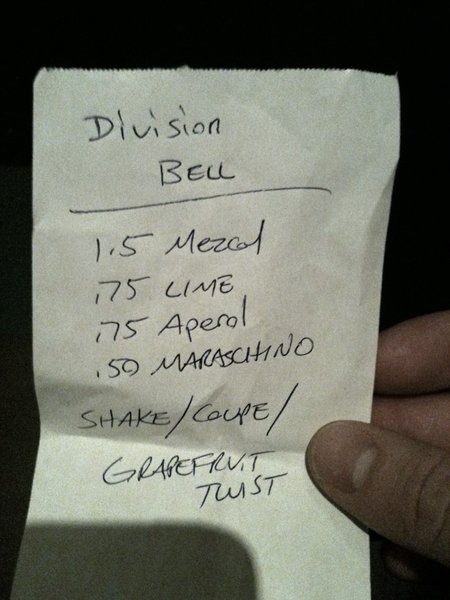 Division
BELL
1.5 Mezcal
.75 LIME
.75 Aperol
.50 MARASCHINO
SHAKE/COUPE/
GRAPEFRUIT
TWIST